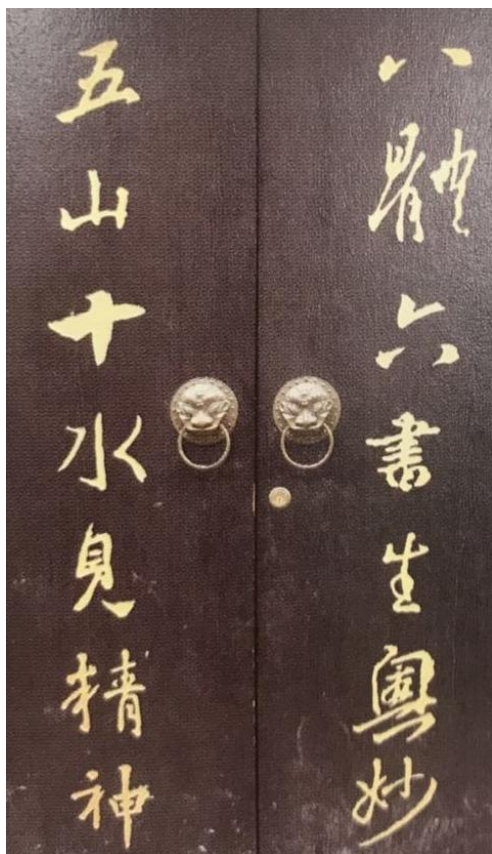 八體六書生奧妙
五山十水見精神